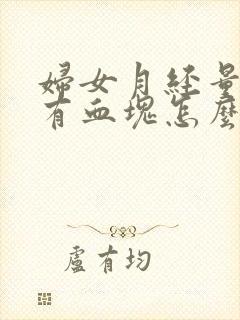 婦女月經量
有血塊怎麼
盧有均